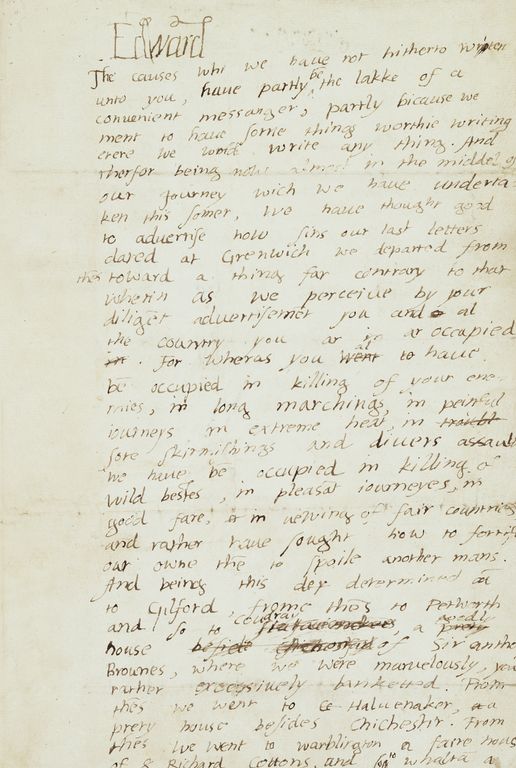 Edward
The causes whi we have not hitherto written
unto you, have partly be the lakke of a
convenient messanger, partly bicause we
ment to have some things worthie writing
erere we wold write any thing. And
therfor being now almost in the middel of
our Journey wich we have underta
ken this somer, We have thought good
to advertise how sins our last letters
dared at Grenwich we departed from
thes toward a thing far contrary to that
wherin as we perceive by your
diligēt advertisemēt you and al
the country you ar in ar occupied
in. For wheras you al have
be occupied in killing of your ene-
mies, in long marchings, in peinful
iourneys in extreme heat, in
sore skirmishings and divers assaul
we have be occupied in killing of
wild bestes, in pleasāt iourneyes, in
good fare, in vewing of fair countries
and rather have sought how to fortifi
our owne the to spoile another mans.
And being this dey determined
to Gilford frome thes to Petworth
and so to Coudray, a goodly
house beside of Sir antho
Brownes, where we were marvelously, yea
rather excessively banketted. From
thēs we went to Halvenaker, a
prety house besides Chichestir. From
thēs we went to warblington a faire hous
of S Richard Cottons, and so to whaltā a